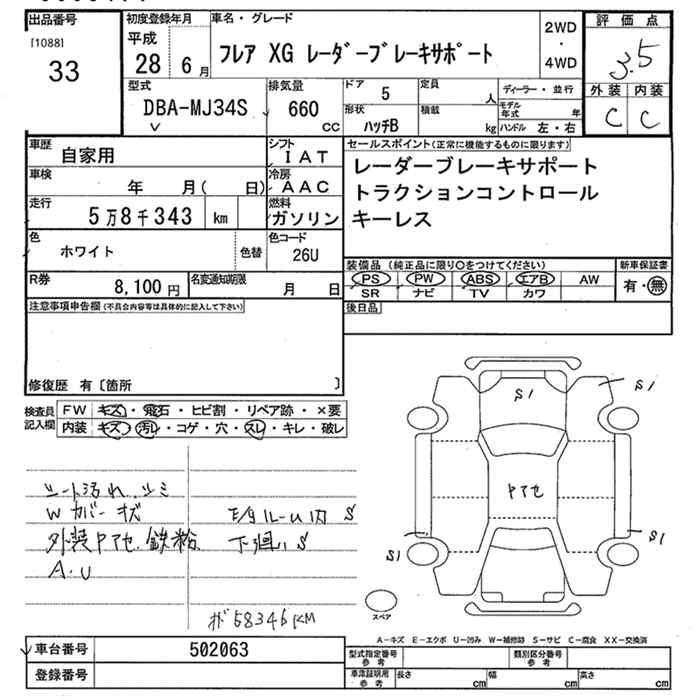 出品番号
[1088]
33
初度登録年月
平成
28 6 月
車名・グレード
フレア XG レーダーブレーキサポート
2WD
・
4WD
評価点
3.5
外装 内装
C C
型式
DBA-MJ34S
排気量
660
CC
ドア 5
形状 ハッチB
定員 人
積載 kg
ディーラー・並行
モデル年式 年
ハンドル 左・右
車歴 自家用
シフト IAT
車検 年 月( 日)
冷房 AAC
走行 5万8千343 km
燃料 ガソリン
色 ホワイト 色替
色コード 26U
R券 8,100円
名変通知期限 月 日
セールスポイント(正常に機能するものに限ります)
レーダーブレーキサポート
トラクションコントロール
キーレス
装備品 (純正品に限り○をつけてください)
PS PW ABS エアB AW
SR ナビ TV カワ
新車保証書
有・無
後日品
注意事項申告欄(不具合内容等は具体的に記入して下さい)
修復歴 有〔箇所 〕
検査員記入欄
FW キズ・飛石・ヒビ割・リペア跡・×要
内装 キズ・汚レ・コゲ・穴・スレ・キレ・破レ
シート汚れ.シミ
Wカバーキズ
外装Pアセ.鉄粉.
A.U
下廻りS
58346KM
S1
S1
Pアセ
S1
S1
スペア
A-キズ E-エクボ U-凹み W-補修跡 S-サビ C-腐食 XX-交換済
車台番号 502063
登録番号
型式指定番号 参考
類別区分番号 参考
車庫証明用 参考
長さ cm 幅 cm 高さ cm